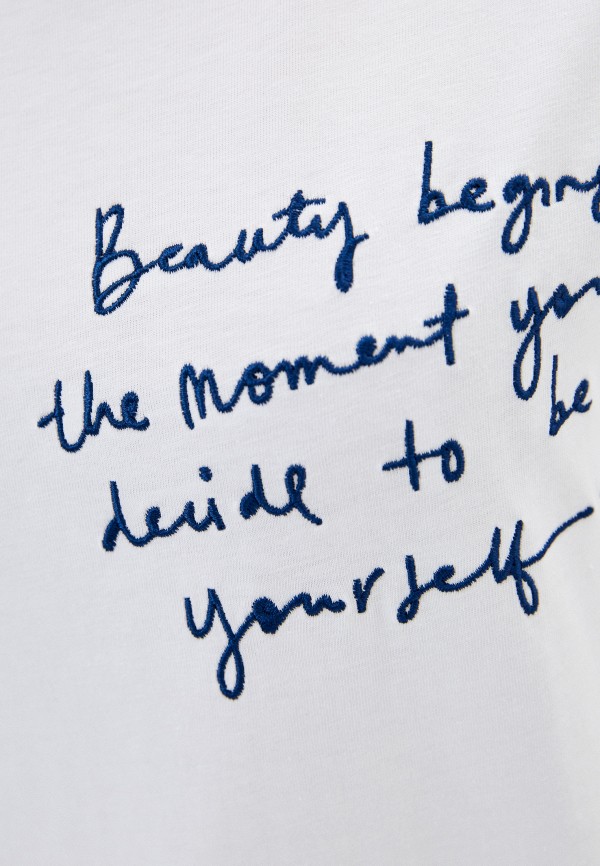 Beauty begins
the moment you
decide to be
yourself